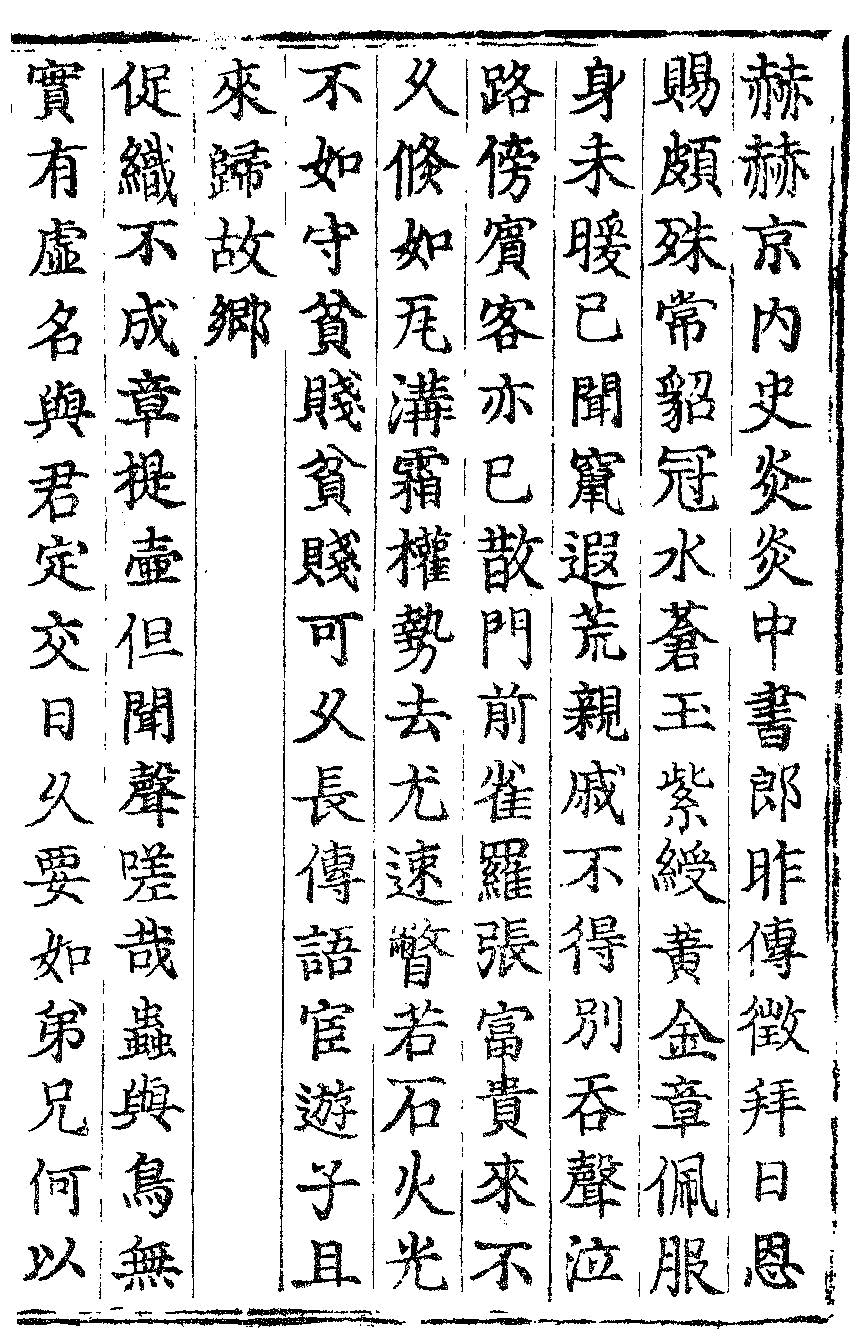 赫赫京内史炎炎中書郎昨傳徵拜日恩
賜頗殊常貂冠水蒼玉紫綬黃金章佩服
身未暖已聞竄遐荒親戚不得別吞聲泣
路傍賓客亦已散門前雀羅張富貴來不
久倐如瓦溝霜權勢去尤速瞥若石火光
不如守貧賤貧賤可久長傳語宦遊子且
來歸故鄉
促織不成章提壺但聞聲嗟哉蟲與鳥無
實有虛名與君定交日久要如弟兄何以